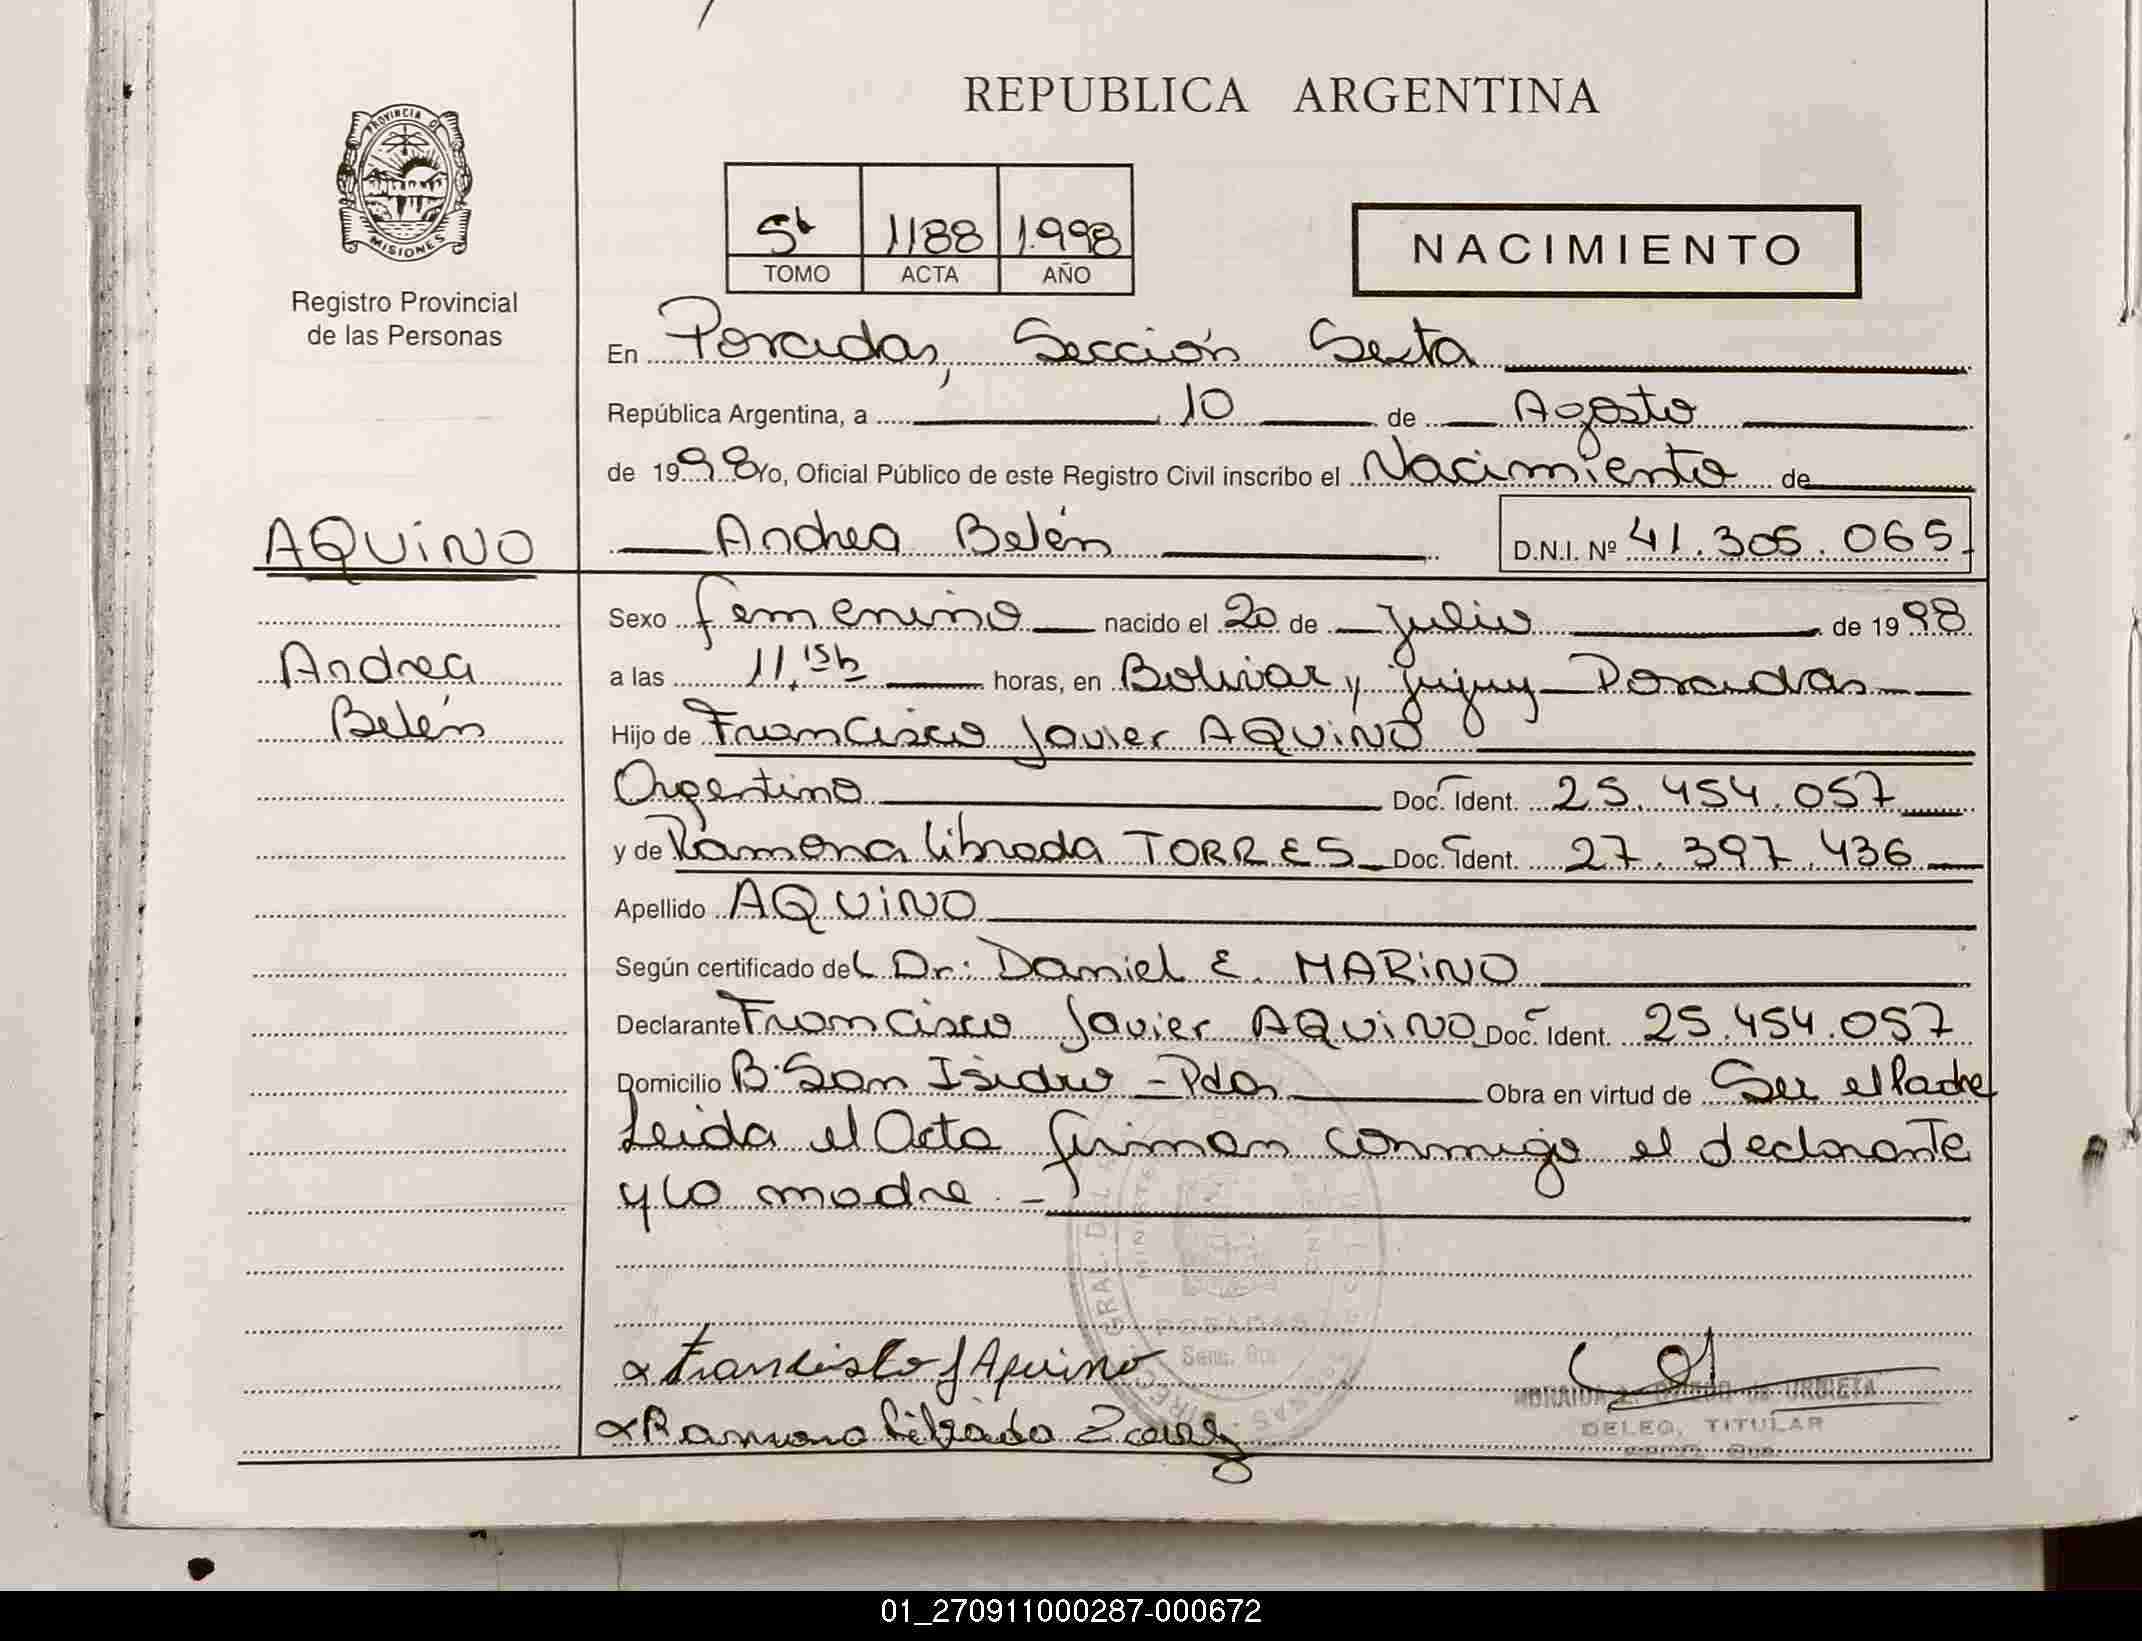 REPUBLICA ARGENTINA
PROVINCIA D
MISIONES
Registro Provincial
de las Personas
5b 1188 1.998
TOMO ACTA AÑO
NACIMIENTO
En Posadas, Sección Sexta
República Argentina, a 10 de Agosto
de 1998 Yo, Oficial Público de este Registro Civil inscribo el Nacimiento de
AQUiNO
Andrea Belén D.N.I. Nº 41.305.065
Sexo femenino nacido el 20 de Julio de 1998
Andrea
a las 11,15h horas, en Bolivar y jujuy Posadas
Belén
Hijo de Francisco Javier AQUiNO
Argentino Doc. Ident. 25.454.057
y de Ramona librada TORRES Doc. Ident. 27.397.436
Apellido AQUiNO
Según certificado del Dr: Daniel E. MARiNO
Declarante Francisco Javier AQUiNO Doc. Ident. 25.454.057
Domicilio B: San Isidro - Pdas Obra en virtud de Ser el Padre
Leida el Acta firman conmigo el declarante
y la madre. -
POSADAS
Francisco J Aquino
Ramona
URBIETA
DELEG. TITULAR
01_270911000287-000672